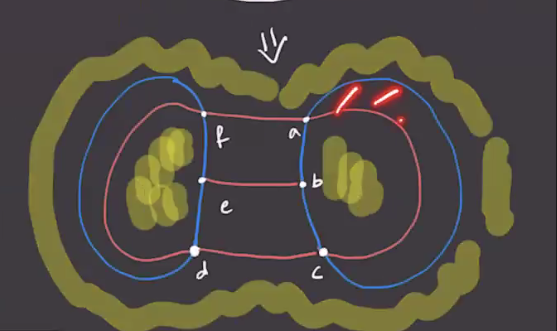 f
a
b
e
d
c